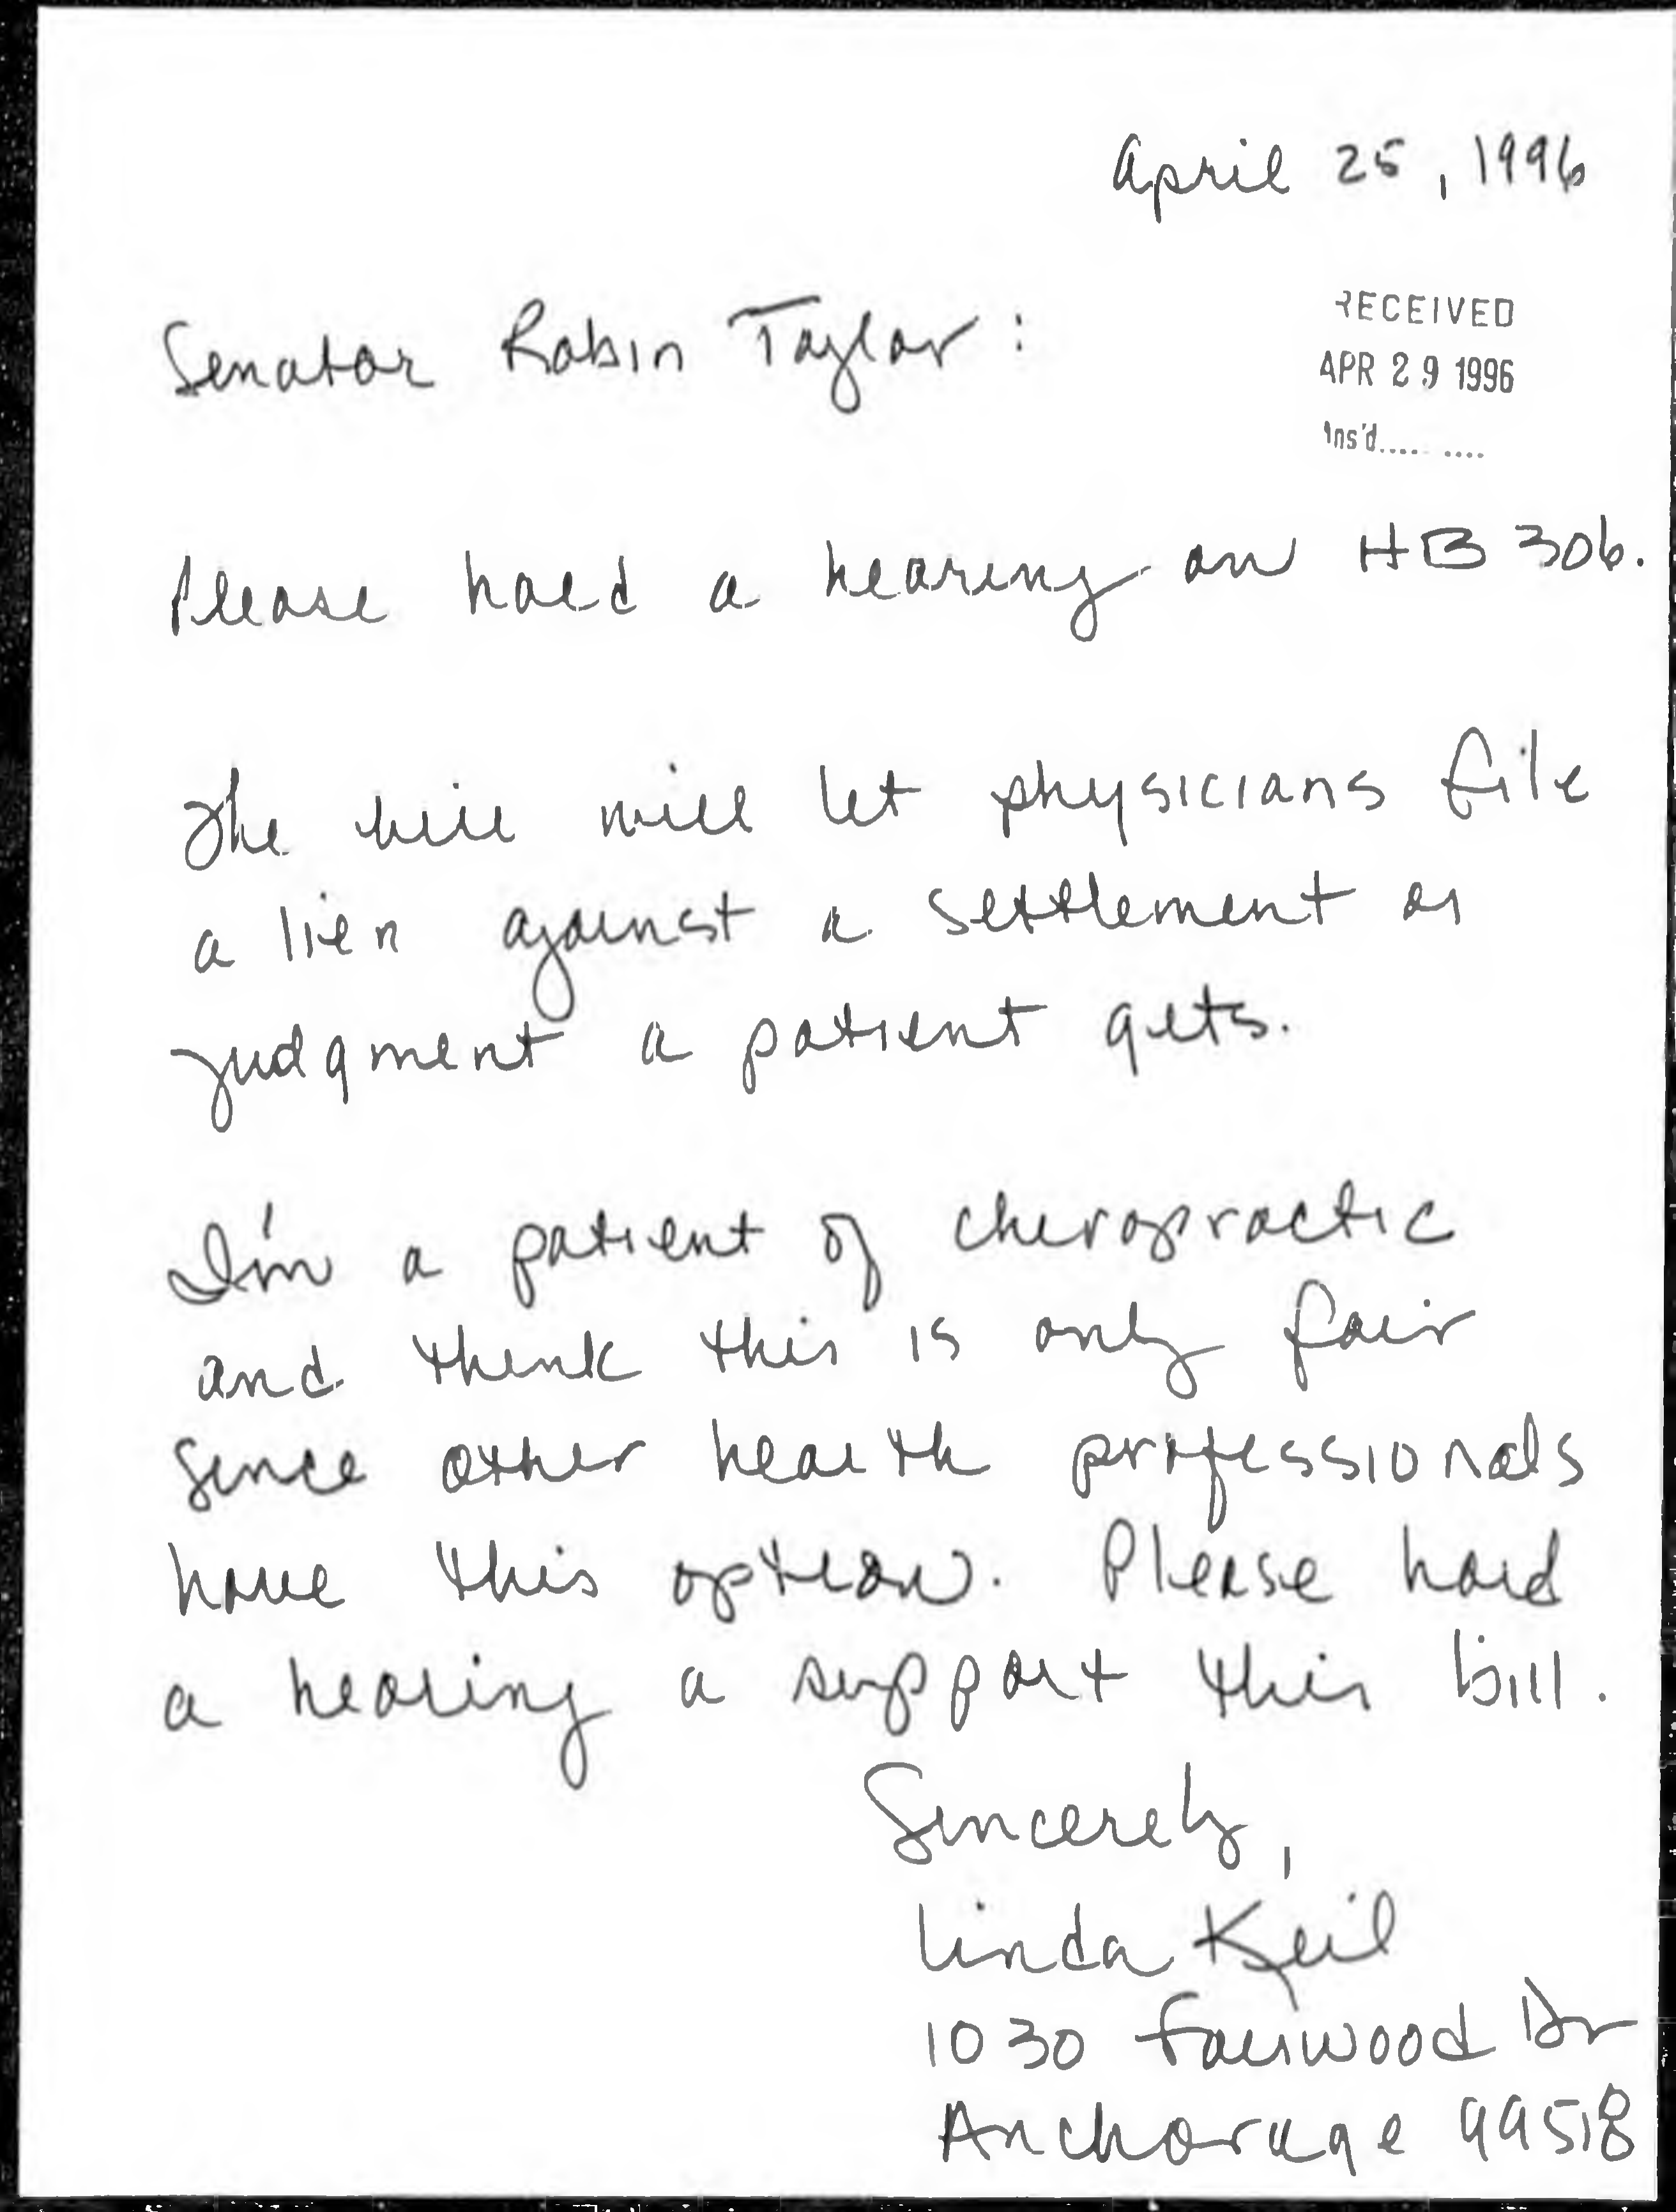 April 25, 1996
RECEIVED
Senator Robin Taylor:
APR 29 1996
Ins'd.........
Please hold a hearing on HB 306.
The bill will let physicians file
a lien against a settlement or
judgment a patient gets.
I'm a patient of chiropractic
and think this is only fair
since other health professionals
have this option. Please hold
a hearing a support this bill.
Sincerely,
Linda Keil
1030 Fairwood Dr
Anchorage 99518